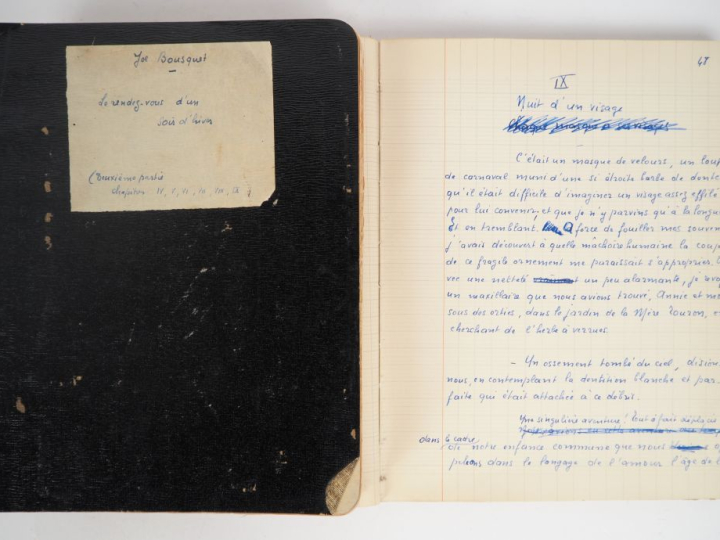 Joe Bousquet
Le rendez-vous d'un
soir d'hiver
(Deuxième partie
chapitres IV, V, VI, VII, VIII, IX)
48
IX
Nuit d'un visage
C'était un masque de velours, un loup
de carnaval muni d'une si étroite barbe de dente
qu'il était difficile d'imaginer un visage assez effilé
pour lui convenir, et que je n'y parvins qu'à la longue
Et en tremblant. A force de fouiller mes souveni
j'avais découvert à quelle mâchoire humaine la coup
de ce fragile ornement me paraissait s'approprier.
vec une netteté un peu alarmante, je
un maxillaire que nous avions trouvé, Annie et m
sous des orties, dans le jardin de la Mère Touron, e
cherchant de l'herbe à verrues.
- Un ossement tombé du ciel, disions
nous, en contemplant la dentition blanche et par
faite qui était attachée à ce débris.
Une singulière aventure! Tout à fait déplacée
dans le cadre
où notre enfance commune que nous
dans le langage de l'amour l'âge de